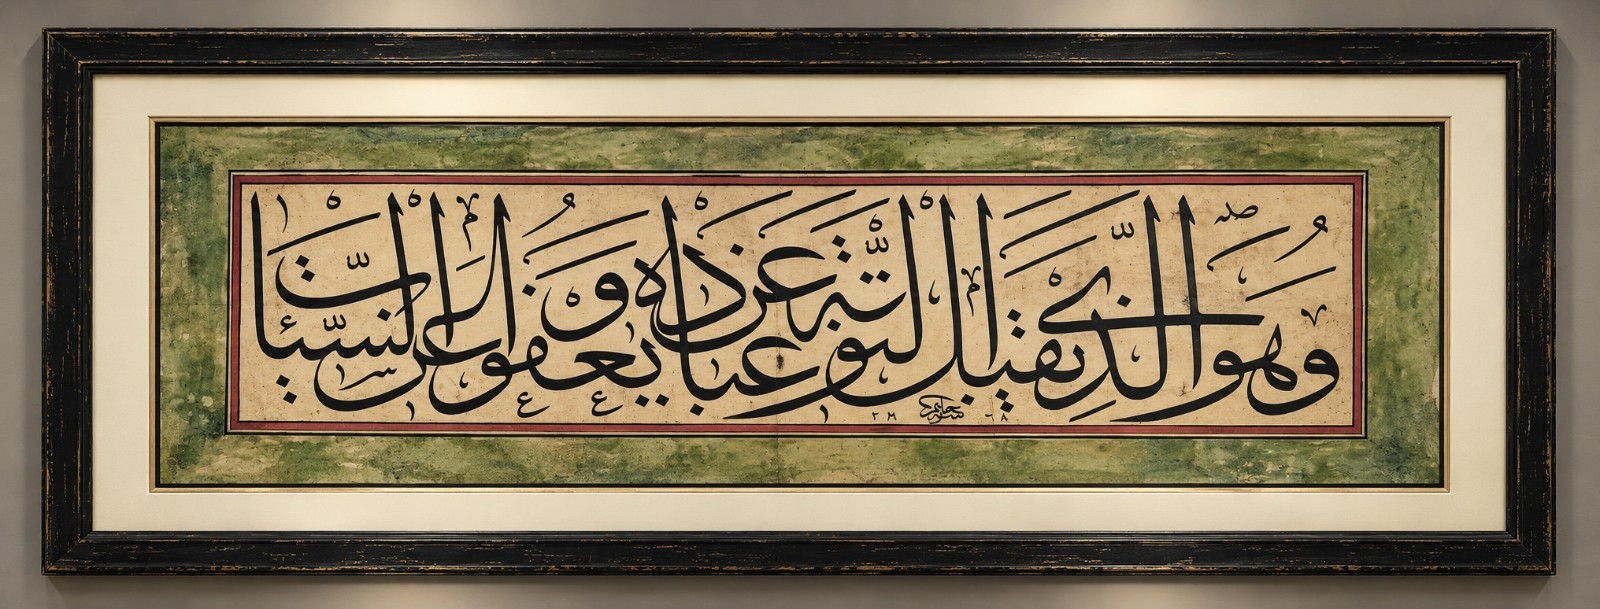 وهو الذى يقبل التوبة عن عباده ويعفوا عن السيئات